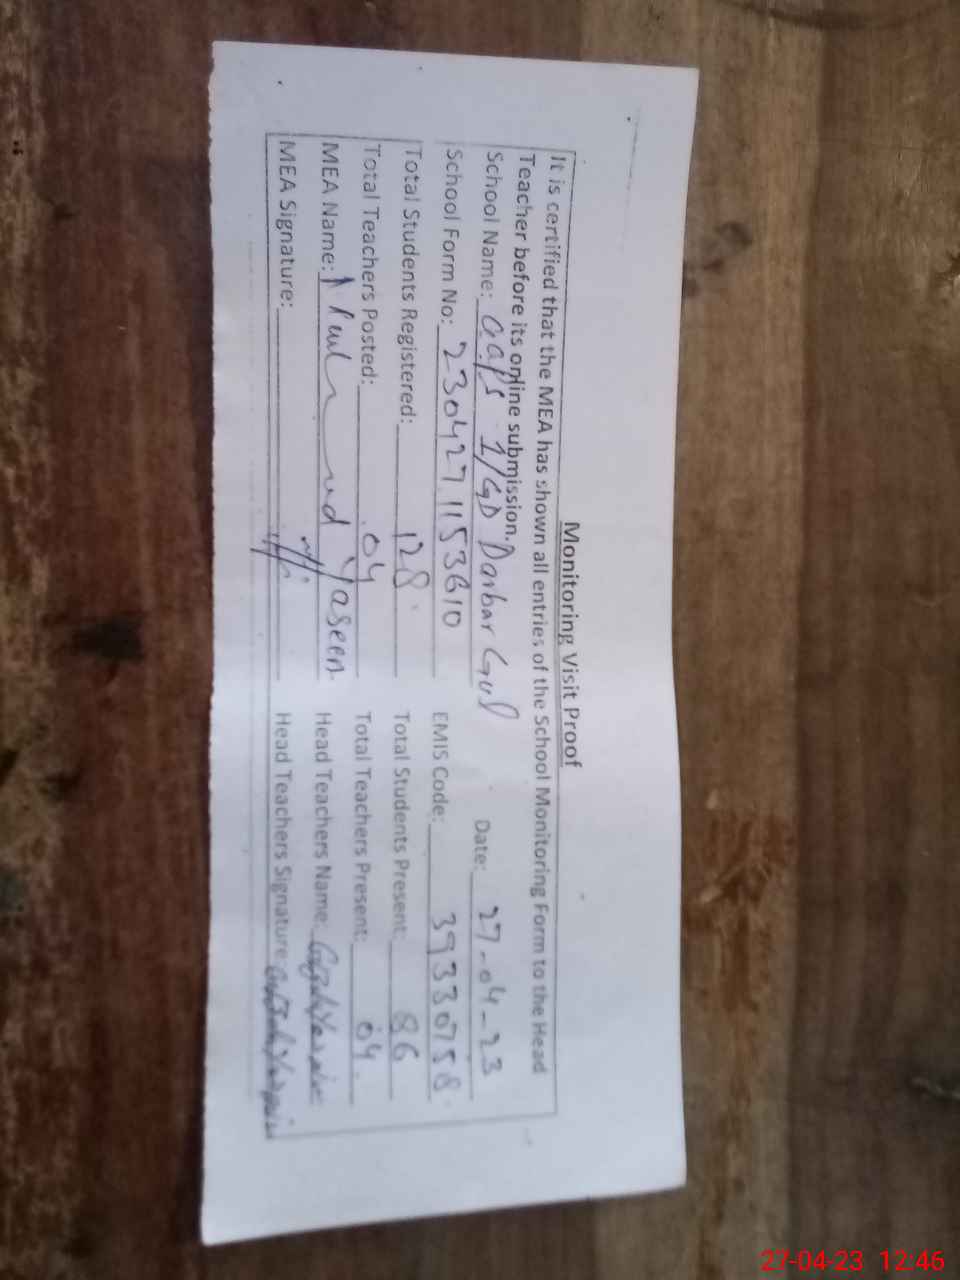 Monitoring Visit Proof
It is certified that the MEA has shown all entries of the School Monitoring Form to the Head
Teacher before its online submission.
School Name: GGPS 1/GD Darbar Gul Date: 27-04-23
School Form No: 230427 1153610 EMIS Code: 39330758
Total Students Registered: 128 Total Students Present: 86
Total Teachers Posted: 04 Total Teachers Present: 04
MEA Name: Yaseen Head Teachers Name:
MEA Signature: Head Teachers Signature:
27-04-23 12:46